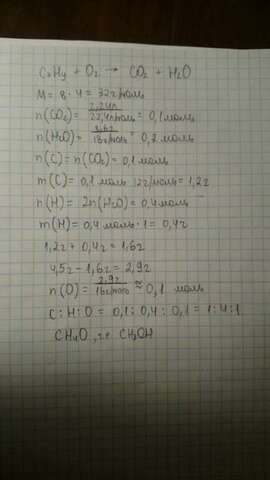 CxHy + O2 → CO2 + H2O
M = 8 · 4 = 32 г/моль
n(CO2) = 2,24л / 22,4л/моль = 0,1 моль
n(H2O) = 3,6г / 18г/моль = 0,2 моль
n(C) = n(CO2) = 0,1 моль
m(C) = 0,1 моль · 12г/моль = 1,2г
n(H) = 2n(H2O) = 0,4 моль
m(H) = 0,4 моль · 1 = 0,4г
1,2г + 0,4г = 1,6г
4,5г - 1,6г = 2,9г
n(O) = 2,9г / 16г/моль ≈ 0,1 моль
C : H : O = 0,1 : 0,4 : 0,1 = 1 : 4 : 1
CH4O, т.е. CH3OH